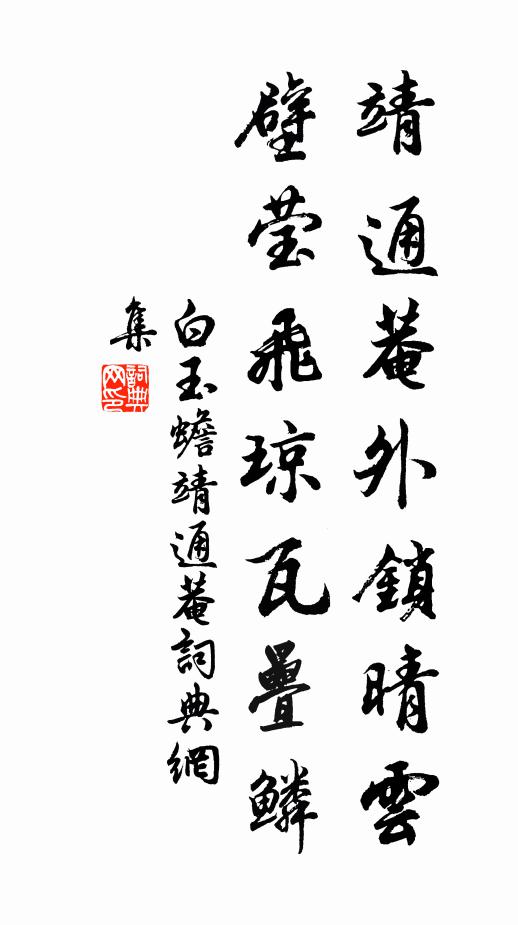 靖通菴外鎖晴雲
壁莹飛琼瓦疊鱗
白玉蟾靖通菴詞典網
集
詞典网印